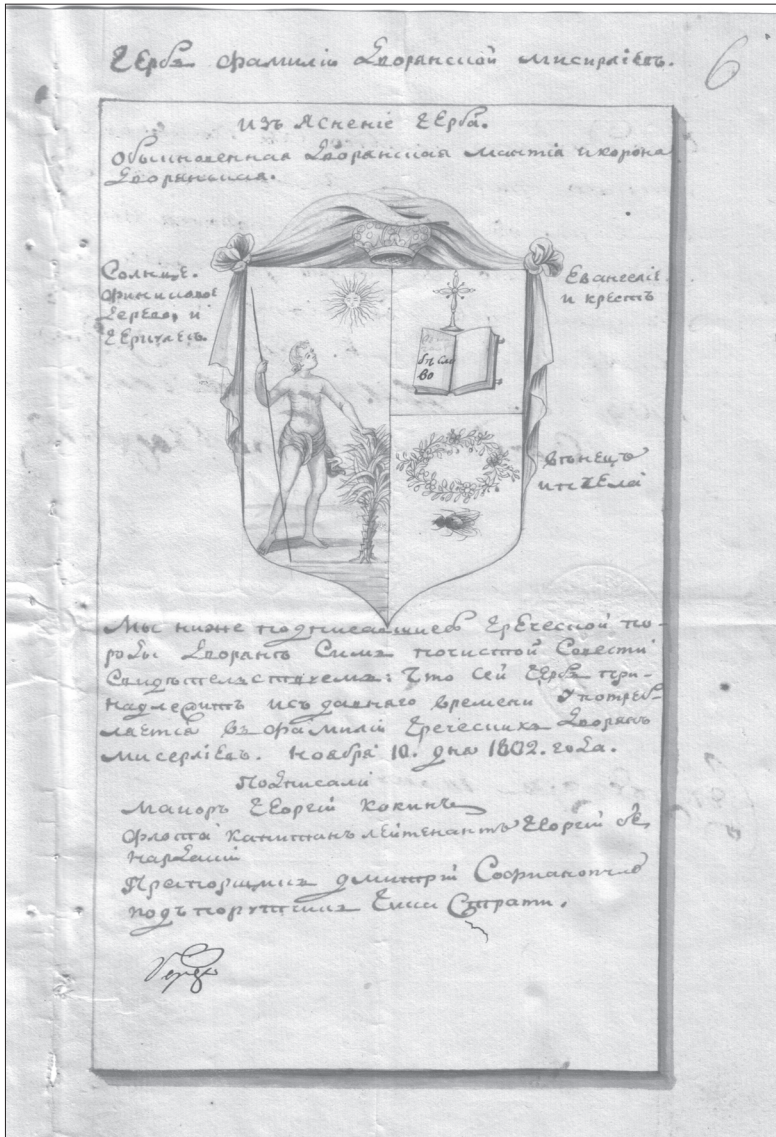 Гербъ фамиліи Дворянской Мисирліевъ.
6
Изъ Ясненіе Герба.
Обыкновенная Дворянская мантія и корона
Дворянская.
Солнце.
Финиковое
дерево, и
Евангеліе
и крестъ
бѣ Сло
во
вѣнецъ
и пчела
Мы ниже подписавшиесь Греческой по-
роды Дворянъ Симъ почистой Совести
Свидѣтельствуемъ: Что Сей Гербъ при-
надлежитъ исъ давнаго времени Употреб-
ляется въ фамиліи Греческихъ Дворянъ
Мисерліевъ. Ноября 10. дня 1802. года.
Подписали
Маиоръ Георгій Кокинъ
Флота капитанъ лейтенантъ Георгій
Прапорщикъ Дмитрій Софианопуло
подъпоручикъ Страти.